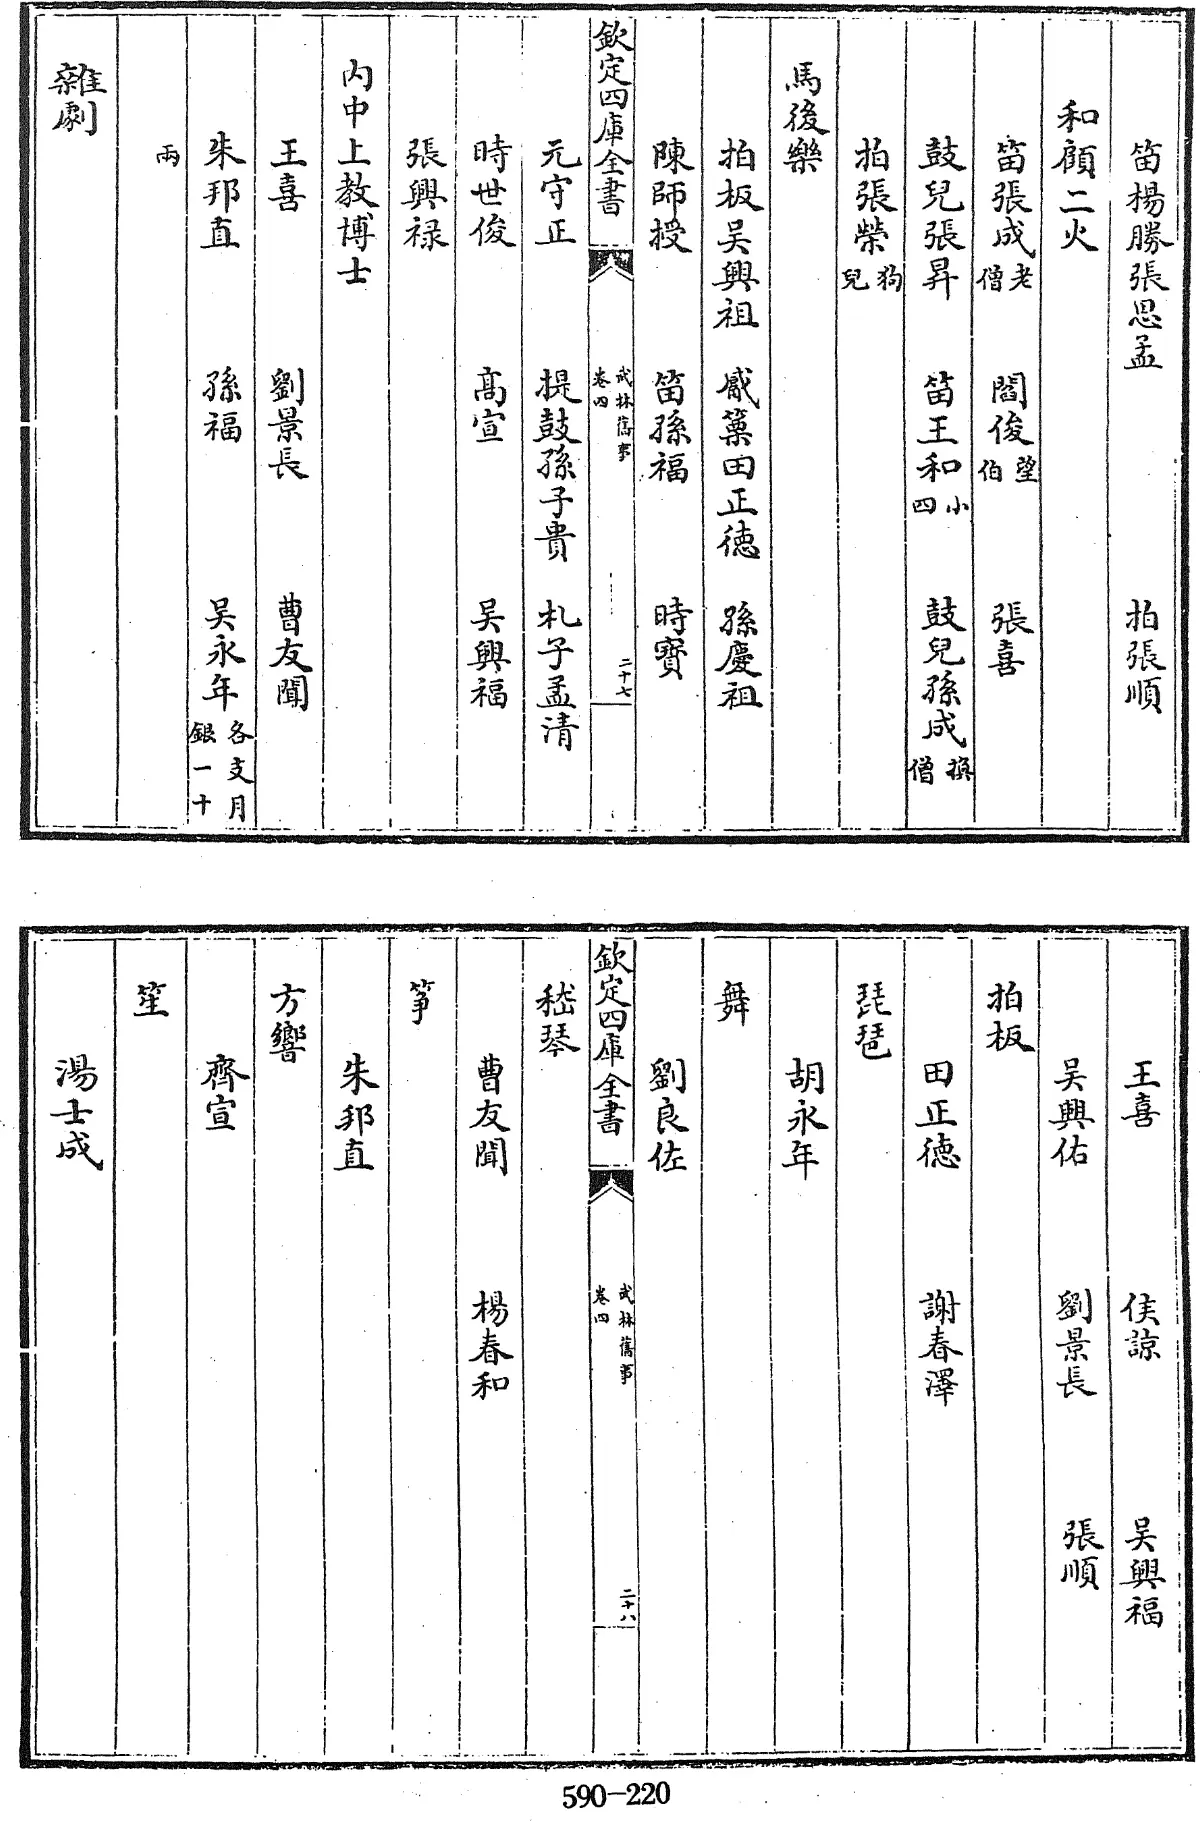 笛楊勝張思孟　拍張順
和顧二火
笛張成老僧　閻俊望伯　張喜
鼓兒張昇　笛王和小四　鼓兒孫成換僧
拍張榮狗兒
馬後樂
拍板吴興祖　觱篥田正德　孫慶祖
陳師授　笛孫福　時寶
欽定四庫全書　武林舊事卷四　二十七
元守正　提鼓孫子貴　札子孟清
時世俊　高宣　吴興福
張興禄
内中上教博士
王喜　劉景長　曹友聞
朱邦直　孫福　吴永年各支月銀一十
兩
雜劇
王喜　侯諒　吴興福
吴興佑　劉景長　張順
拍板
田正德　謝春澤
琵琶
胡永年
舞
劉良佐
欽定四庫全書　武林舊事卷四　二十八
嵇琴
曹友聞　楊春和
箏
朱邦直
方響
齊宣
笙
湯士成
590-220